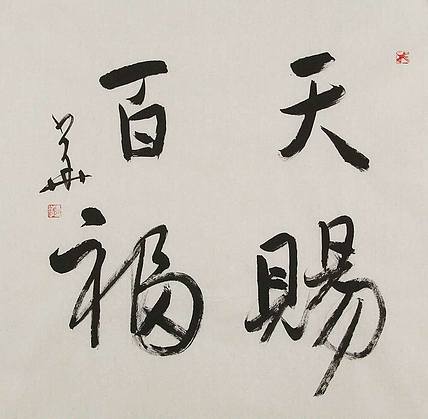 天賜
百福